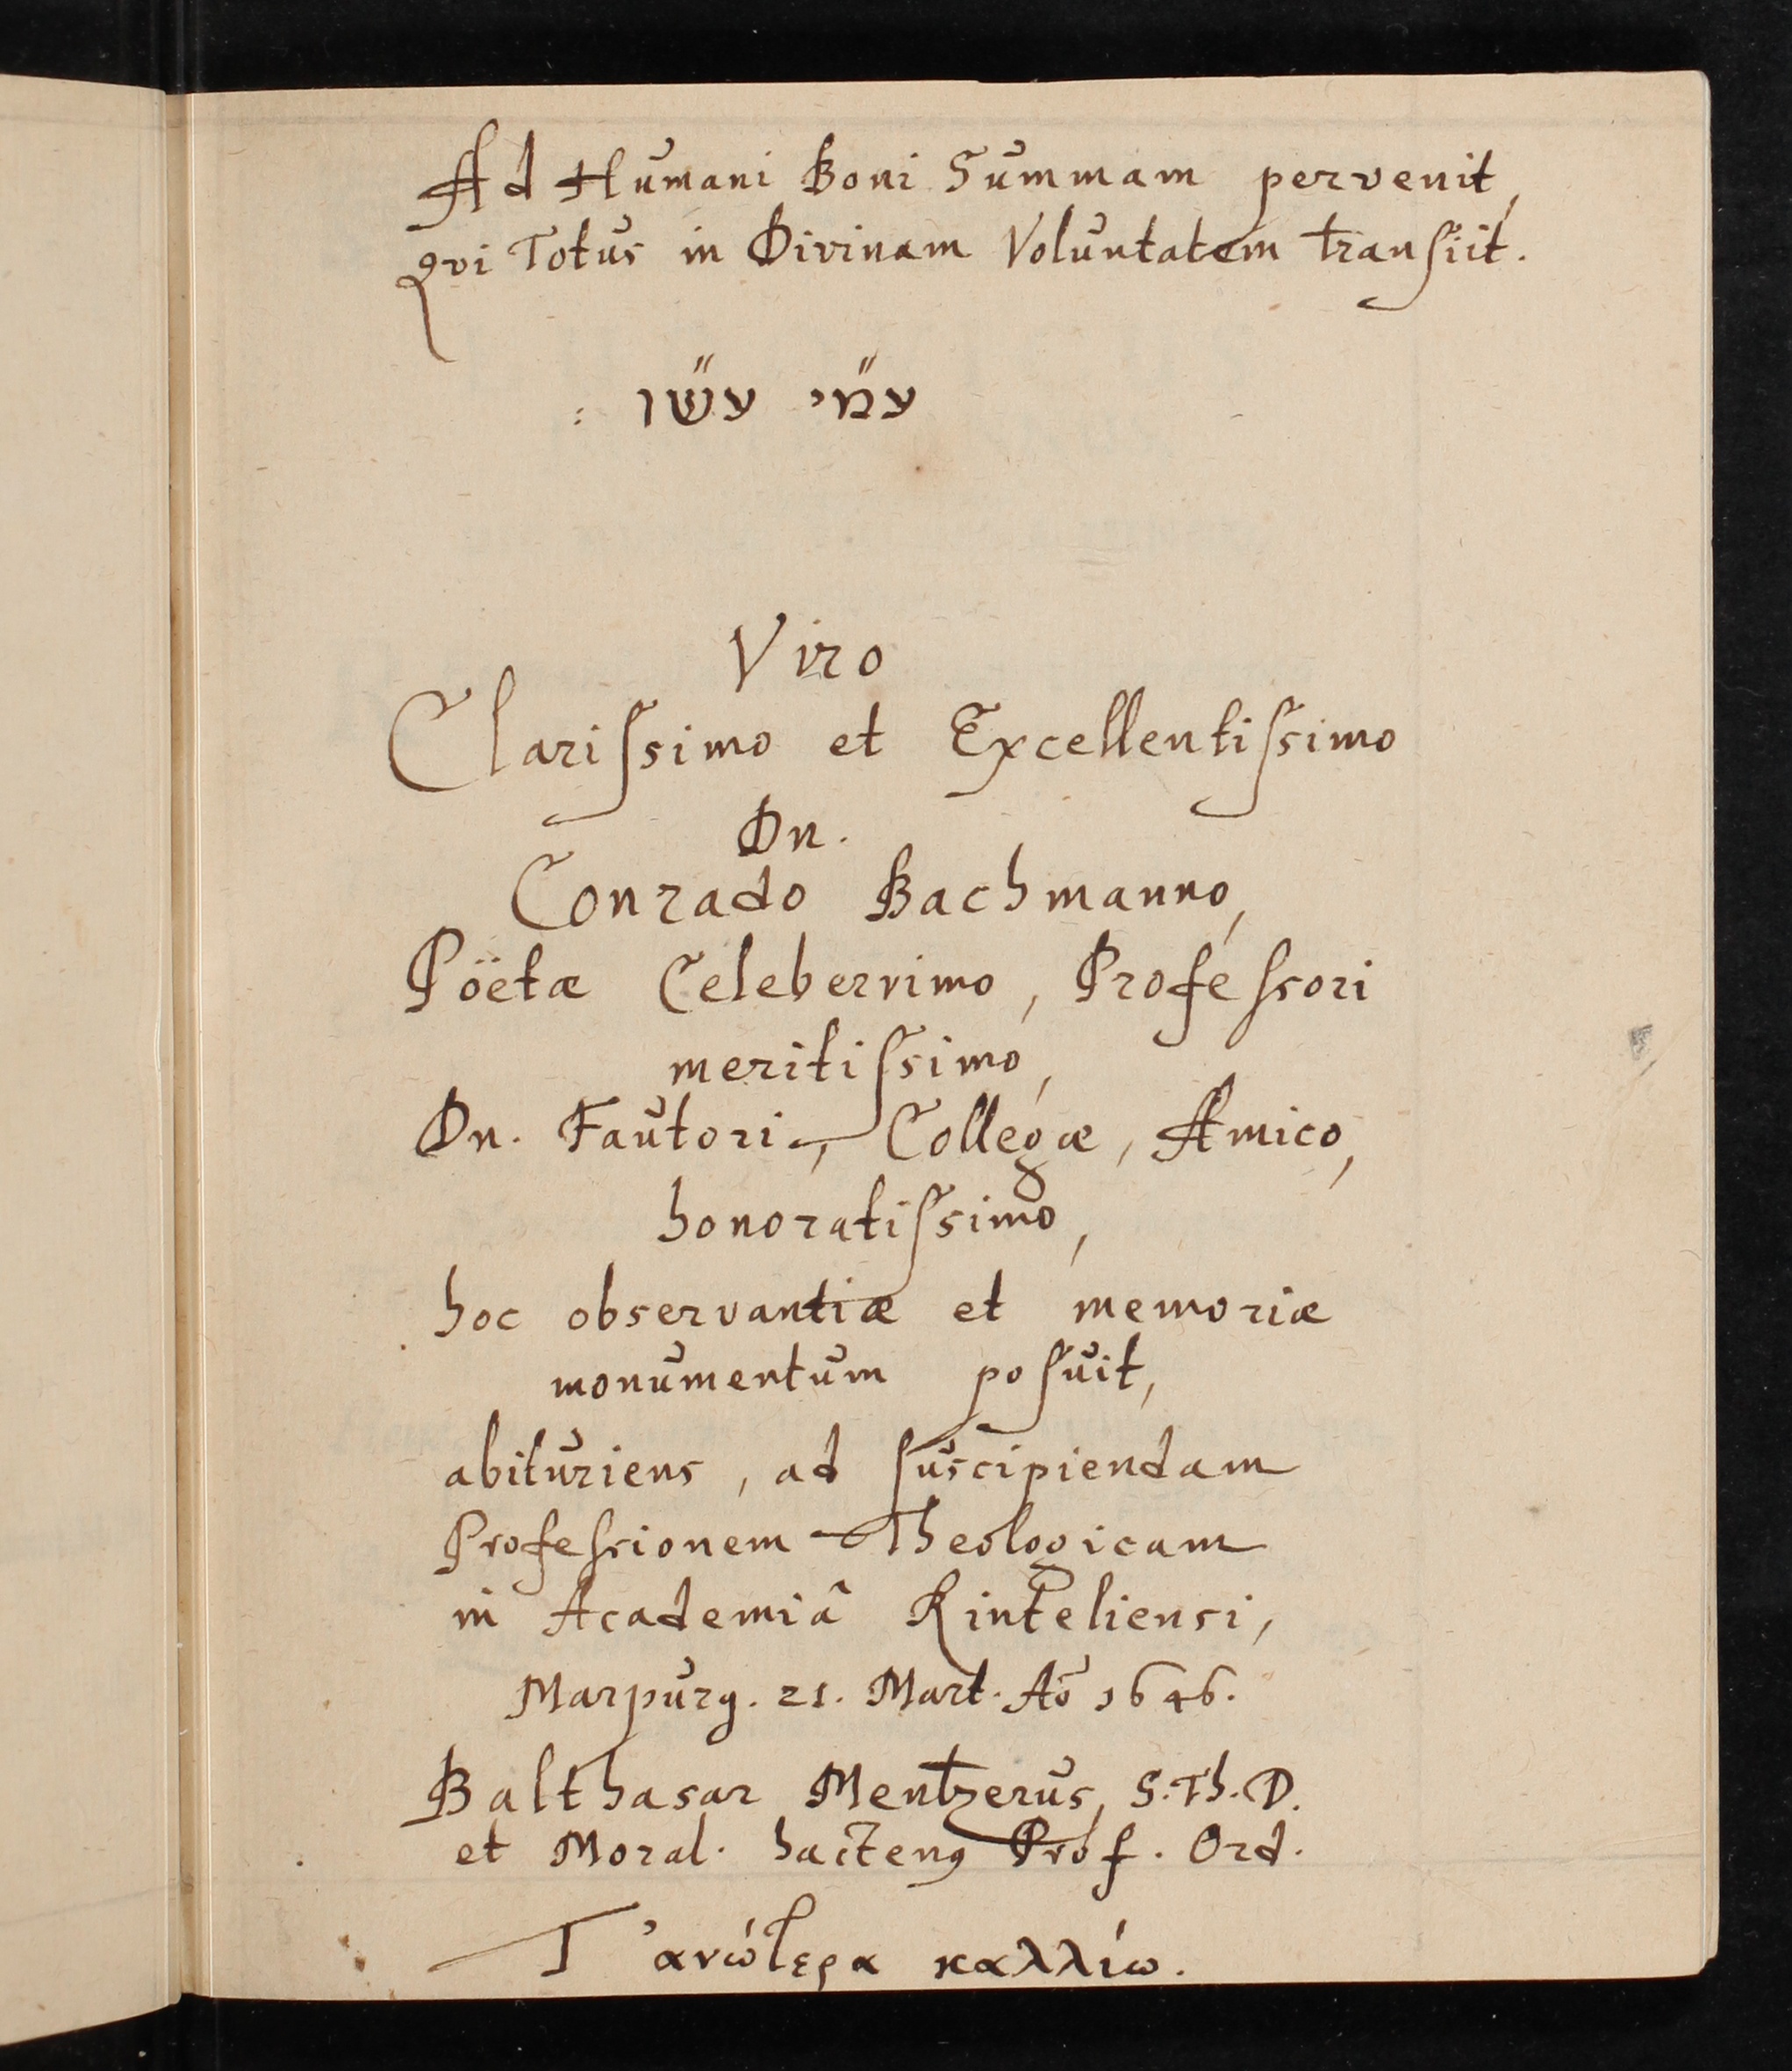 Ad Humani Boni Summam pervenit,
Qvi Totus in Divinam Voluntatem transiit.
עמ״י עש״ו :
Viro
Clarissimo et Excellentissimo
Dn.
Conrado Bachmanno,
Poëtæ Celeberrimo, Professori
meritissimo,
Dn. Fautori, Collegæ, Amico,
honoratissimo,
hoc observantiæ et memoriæ
monumentum posuit,
abituriens, ad suscipiendam
Professionem Theologicam
in Academiâ Rinteliensi,
Marpurg. 21. Mart. Aō 1646.
Balthasar Mentzerus, S. Th. D.
et Moral. hacteng Prof. Ord.
Τ' ἀνώτερα καλλίω.